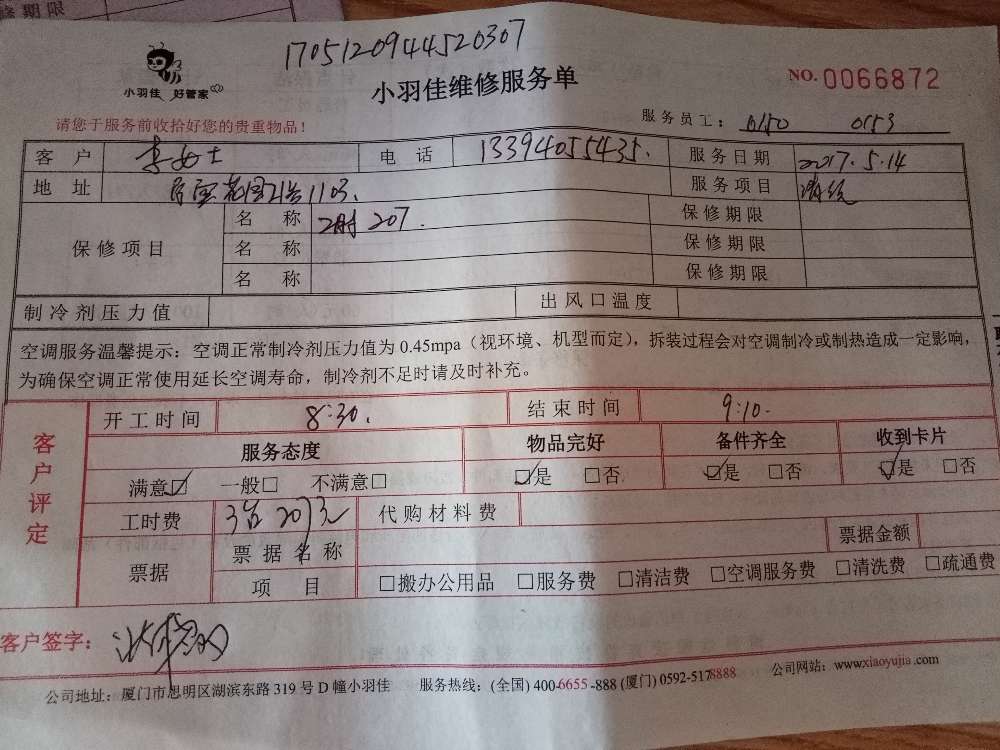 修期限
1705120944520307
小羽佳 好管家
小羽佳维修服务单
NO. 0066872
请您于服务前收拾好您的贵重物品！
服务员工： 0150 0153
客户 李女士 电话 13394055435. 服务日期 2017.5.14
地址 花园21号1103. 服务项目 清洗
保修项目 名称 207. 保修期限
名称 保修期限
名称 保修期限
制冷剂压力值 出风口温度
空调服务温馨提示：空调正常制冷剂压力值为 0.45mpa（视环境、机型而定），拆装过程会对空调制冷或制热造成一定影响，
为确保空调正常使用延长空调寿命，制冷剂不足时请及时补充。
客户评定
开工时间 8:30. 结束时间 9:10.
服务态度 物品完好 备件齐全 收到卡片
满意☑ 一般□ 不满意□ ☑是 □否 ☑是 □否 ☑是 □否
工时费 3台 207元 代购材料费
票据 票据名称 票据金额
项目 □搬办公用品 □服务费 □清洁费 □空调服务费 □清洗费 □疏通费
客户签字：
公司地址：厦门市思明区湖滨东路 319 号 D 幢小羽佳 服务热线：(全国) 400-6655-888 (厦门) 0592-5178888 公司网站：www.xiaoyujia.com